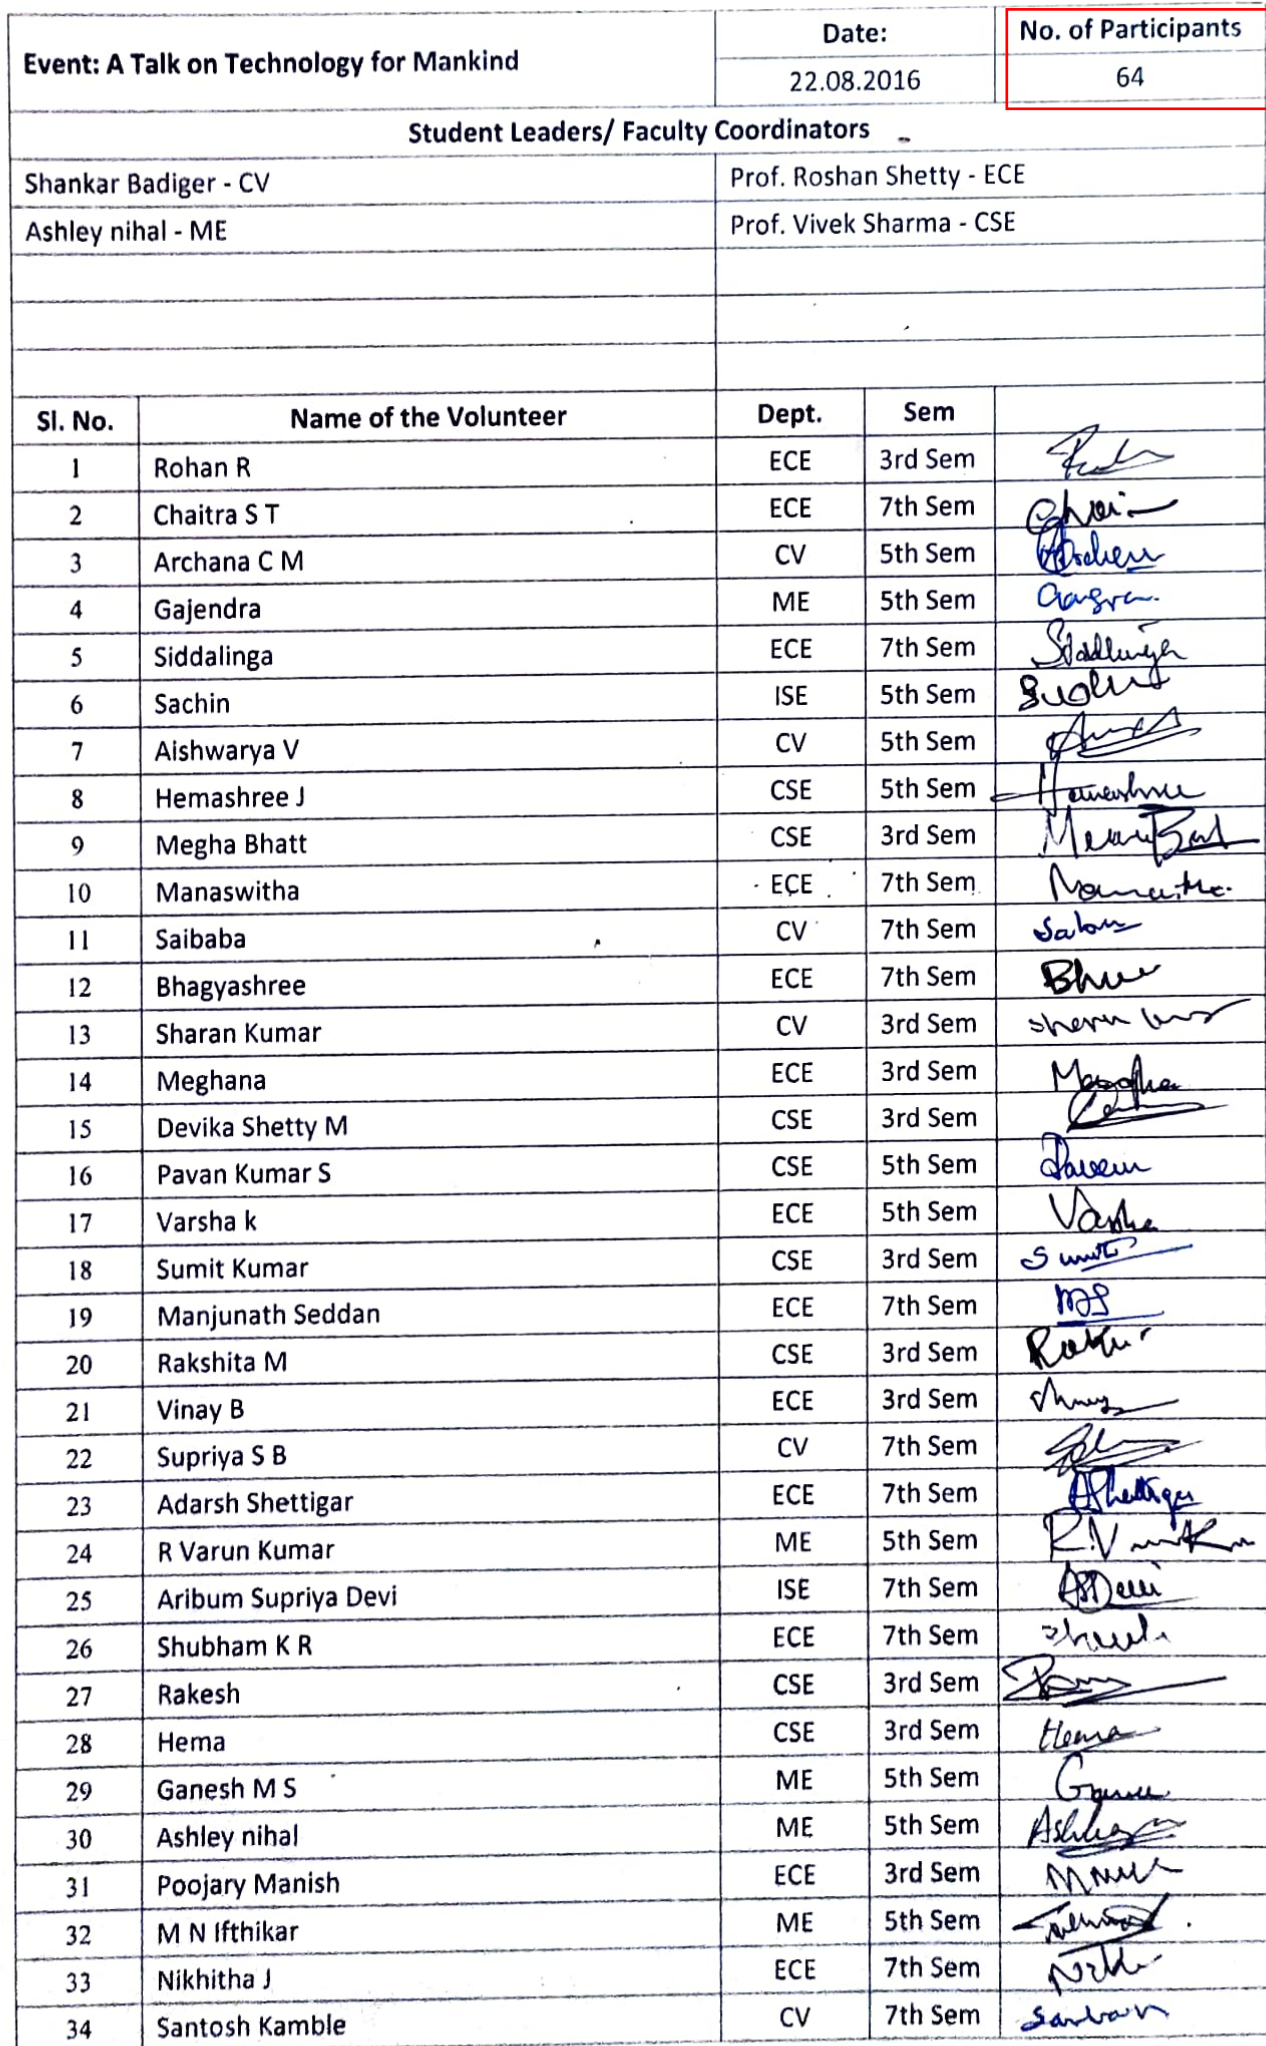 Event: A Talk on Technology for Mankind Date: No. of Participants
22.08.2016 64
Student Leaders/ Faculty Coordinators
Shankar Badiger - CV Prof. Roshan Shetty - ECE
Ashley nihal - ME Prof. Vivek Sharma - CSE
Sl. No. Name of the Volunteer Dept. Sem
1 Rohan R ECE 3rd Sem
2 Chaitra S T ECE 7th Sem
3 Archana C M CV 5th Sem
4 Gajendra ME 5th Sem
5 Siddalinga ECE 7th Sem
6 Sachin ISE 5th Sem
7 Aishwarya V CV 5th Sem
8 Hemashree J CSE 5th Sem
9 Megha Bhatt CSE 3rd Sem
10 Manaswitha ECE 7th Sem
11 Saibaba CV 7th Sem
12 Bhagyashree ECE 7th Sem
13 Sharan Kumar CV 3rd Sem
14 Meghana ECE 3rd Sem
15 Devika Shetty M CSE 3rd Sem
16 Pavan Kumar S CSE 5th Sem
17 Varsha k ECE 5th Sem Varsha
18 Sumit Kumar CSE 3rd Sem
19 Manjunath Seddan ECE 7th Sem MS
20 Rakshita M CSE 3rd Sem
21 Vinay B ECE 3rd Sem
22 Supriya S B CV 7th Sem
23 Adarsh Shettigar ECE 7th Sem AShettigar
24 R Varun Kumar ME 5th Sem
25 Aribum Supriya Devi ISE 7th Sem ASDevi
26 Shubham K R ECE 7th Sem
27 Rakesh CSE 3rd Sem
28 Hema CSE 3rd Sem Hema
29 Ganesh M S ME 5th Sem
30 Ashley nihal ME 5th Sem
31 Poojary Manish ECE 3rd Sem
32 M N Ifthikar ME 5th Sem
33 Nikhitha J ECE 7th Sem
34 Santosh Kamble CV 7th Sem